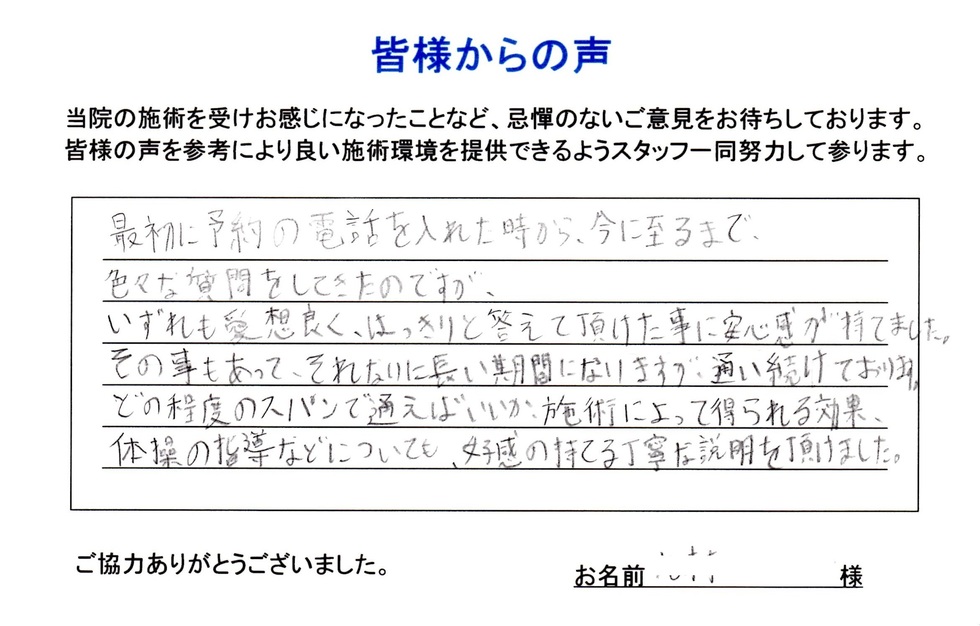 皆様からの声
当院の施術を受けお感じになったことなど、忌憚のないご意見をお待ちしております。
皆様の声を参考により良い施術環境を提供できるようスタッフ一同努力して参ります。
最初に予約の電話を入れた時から、今に至るまで、
色々な質問をしてきたのですが、
いずれも愛想良く、はっきりと答えて頂けた事に安心感が持てました。
その事もあって、それなりに長い期間になりますが、通い続けております。
どの程度のスパンで通えばいいか、施術によって得られる効果、
体操の指導などについても、好感の持てる丁寧な説明を頂けました。
ご協力ありがとうございました。
お名前 様